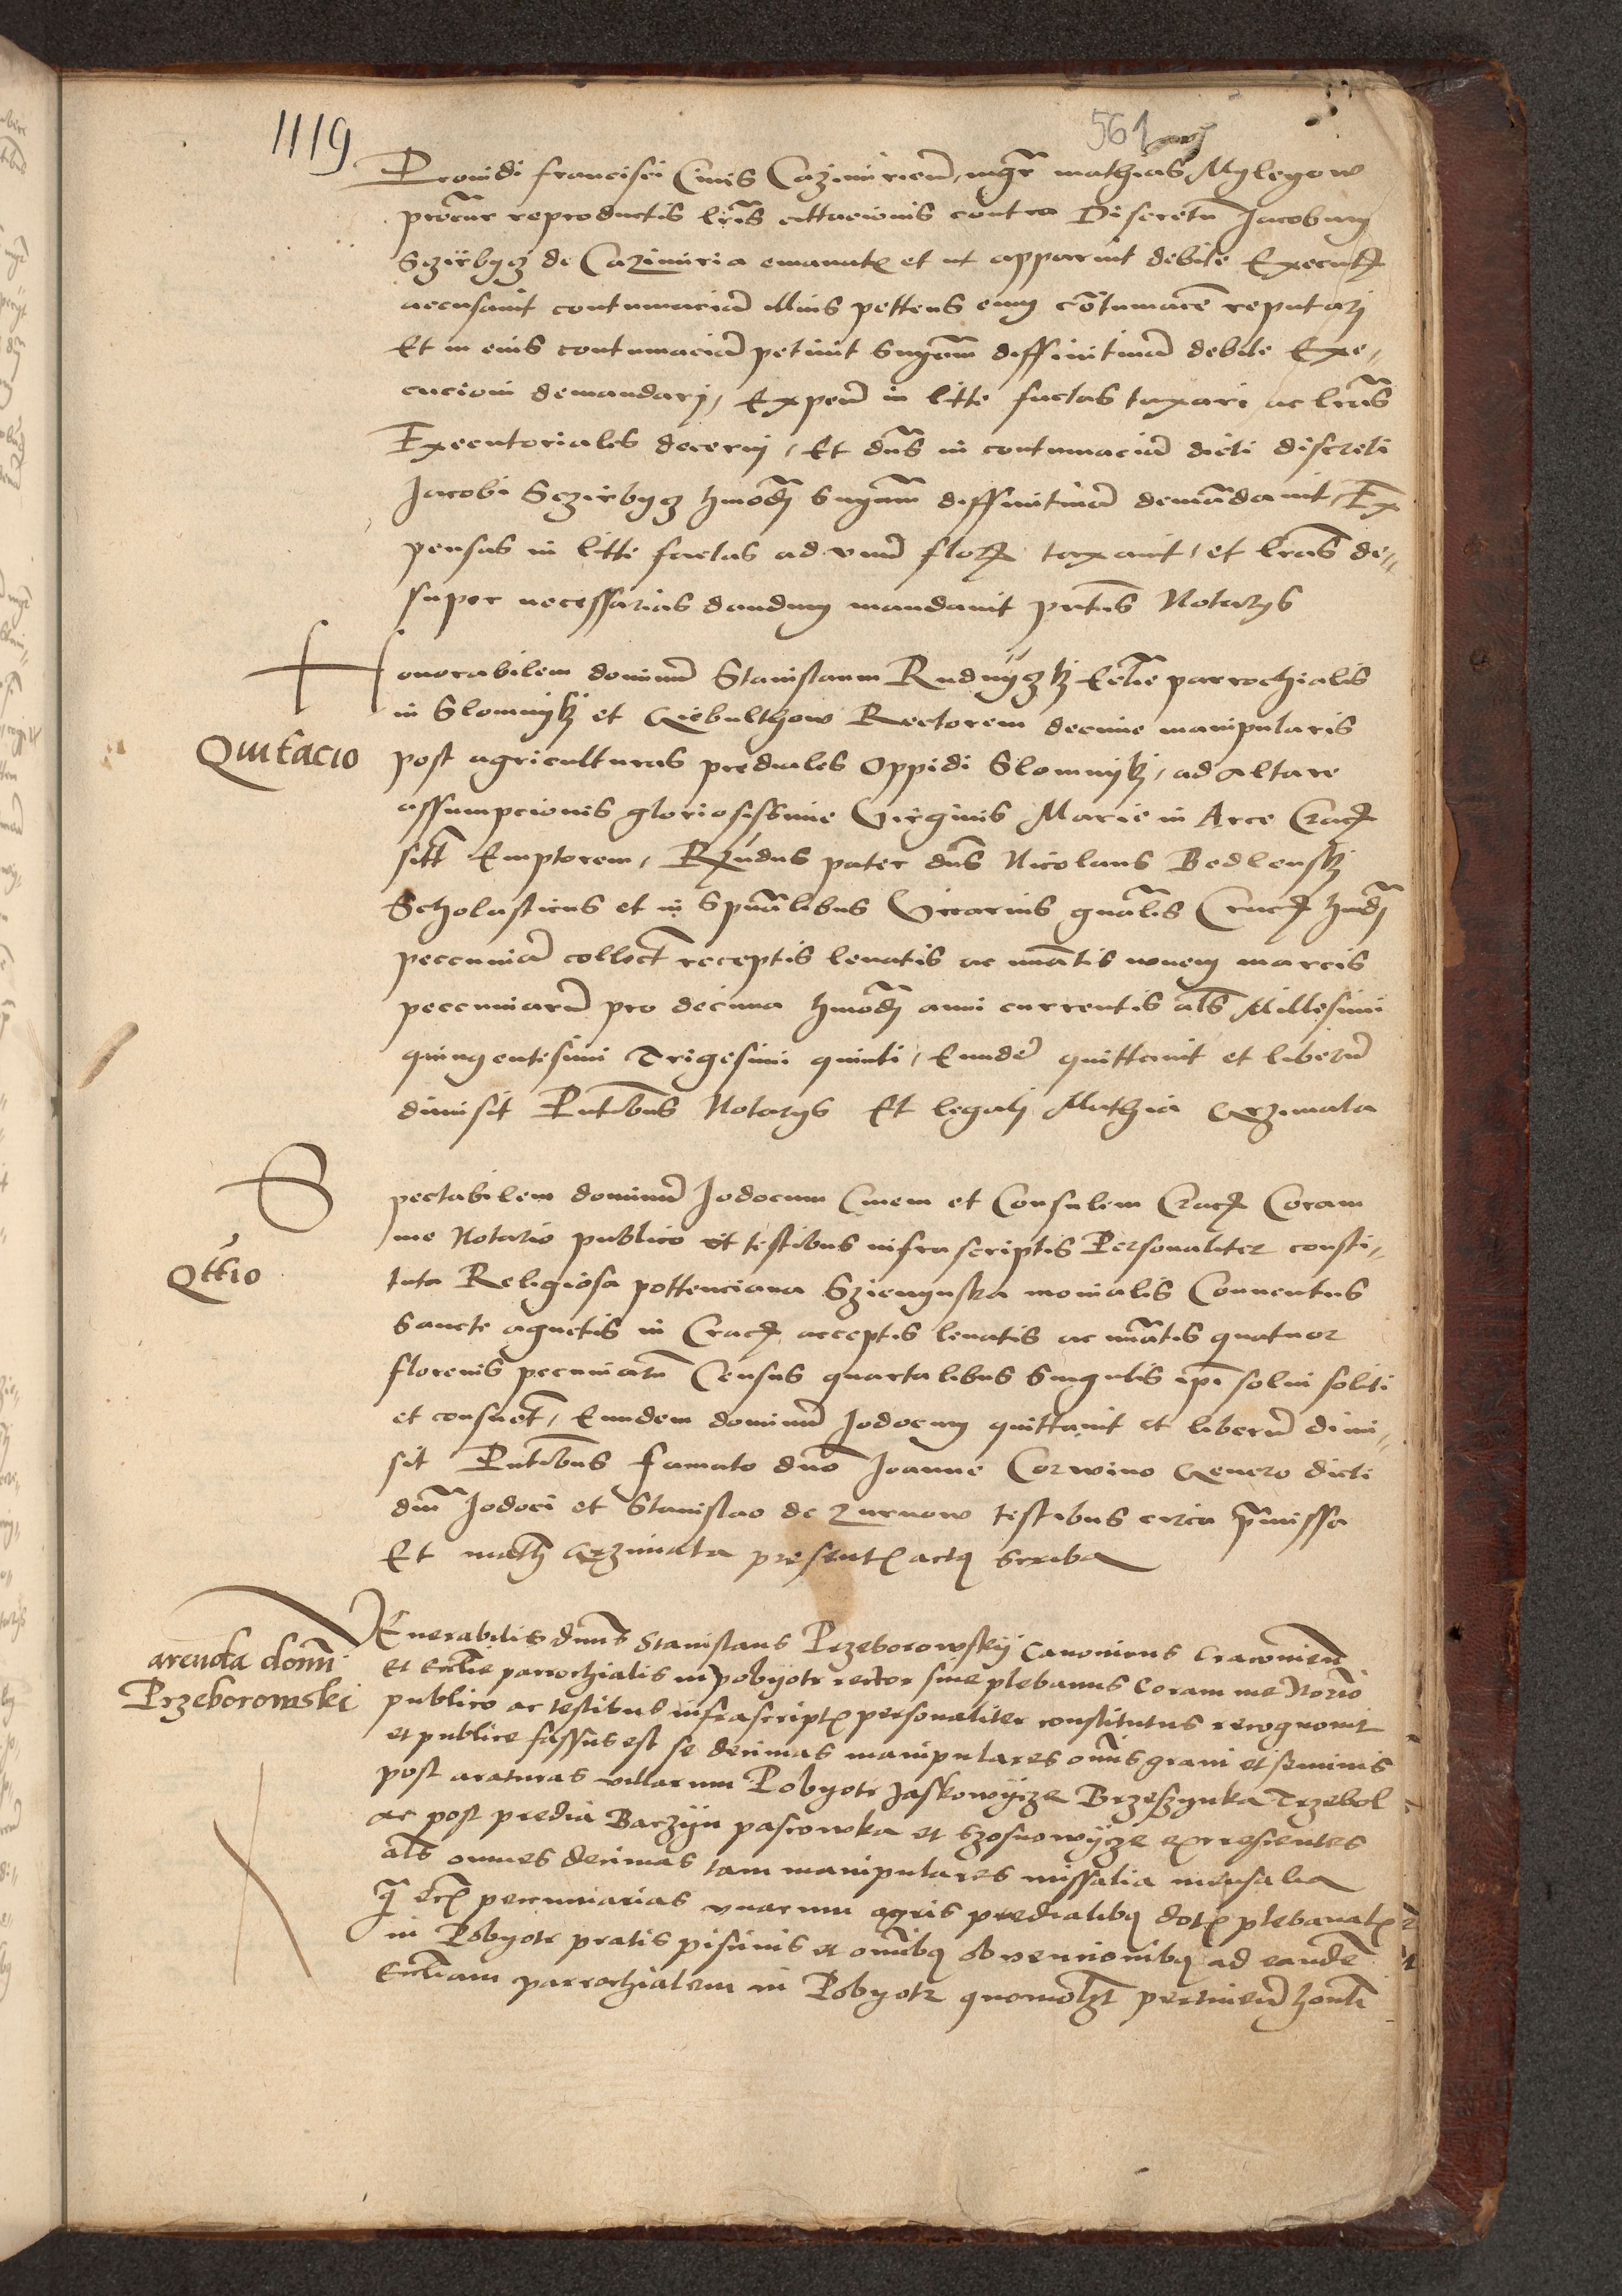 1119
561
Prouidi francisci Ciuis Cazimirieñ, mgr̃ mathias Mylegow
procũr reproductis lr̃is cittacionis contra Discretũ Jacobum
Sczirbycz de Cazimiria emanatꝭ et ut apparuit debite Executꝭ
accusauit contumaciã illius pettens eum cõtumacẽ reputarj
Et in eius contumaciã petiuit Sn̄iam diffinitiuã debite Exe-
cucioni demandarj, Expeñ in litte factas taxari ac lr̃as
Executoriales decernj, Et dñs in contumaciã dicti discreti
Jacobi Sczirbycz hmõdj Sn̄iam diffinitiuã demãdauit, Ex
pensas in litte factas ad vnũ floꝝ taxauit, et lr̃as de-
super necessarias dandum mandauit pñtis Notarys
Honorabilem dominũ Stanislaum Rudnyczkj Ecclie parrochialis
in Slomnykj et Giebulthow Rectorem decime manipularis
Quitacio
post agriculturas prediales Oppidi Slomnykj, ad Altare
assumpcionis gloriosissime Virginis Marie in Arce Cracꝭ
sitt̃ Emptorem, Rx̃ndus pater dñs Nicolaus Bedlenskj
Scholasticus et in Spũalibus Vicarius gñalis Cracꝭ hmõdj
peccuniã collect̃ receptis leuatis ac nũatis nouem marcis
peccuniarũ pro decima hmõdj anni currentis als̃ Millesimi
quingentesimi Trigesimi quinti, Eundẽ quittauit et liberũ
dimisit Pñtibus Notarys Et legalj Mathia Grzimala
Spectabilem dominũ Jodocum Ciuem et Consulem Cracꝭ Coram
me Notario publico et testibus infrascriptis Personaliter consti-
Qttio
tuta Religiosa pottenciana Szienynska monialis Conuentus
Sancte agnetis in Cracꝭ acceptis leuatis ac nũatis quatuor
florenis pecuniarũ Census quartalibus Singulis ip̃i solui soliti
et consuet̃, Eundem dominũ Jodocum quittauit et liberũ dimi-
sit Pñtibus famato dño Joanne Corwino Genero dicti
dñi Jodoci et Stanislao de Zurnow testibus circa p̃missa
Et math Grzimala presentꝭ actꝰ Scriba
arenda domĩ
Przeborowski
Venerabilis dñus Stanislaus Przeborowskij Canonicus Cracouieñ
Et Ecclie parrochialis in pobyotr rector siue plebanus Coram me Norĩo
publico ac testibus infrascriptꝭ personaliter constitutus recognouit
et publice fassus est se decimas manipulares om̃is grani et seminis
post araturas villarum Pobyotr Jaskowycze Brzeszynka Trzebol
ac post predia Baczyn pascowka et Szosnowycze excrescientes
als̃ omnes decimas tam manipulares missalia mensalia
q̃ ecꝭ peccuniarias vnacum agris predialibꝰ dotꝭ plebanalꝭ
in Pobyotr pratis piscinis et om̃ibꝰ obuencionibꝰ ad eandẽ
Eccliam parrochialem in Pobyotr quomolȝt pertineñ honli